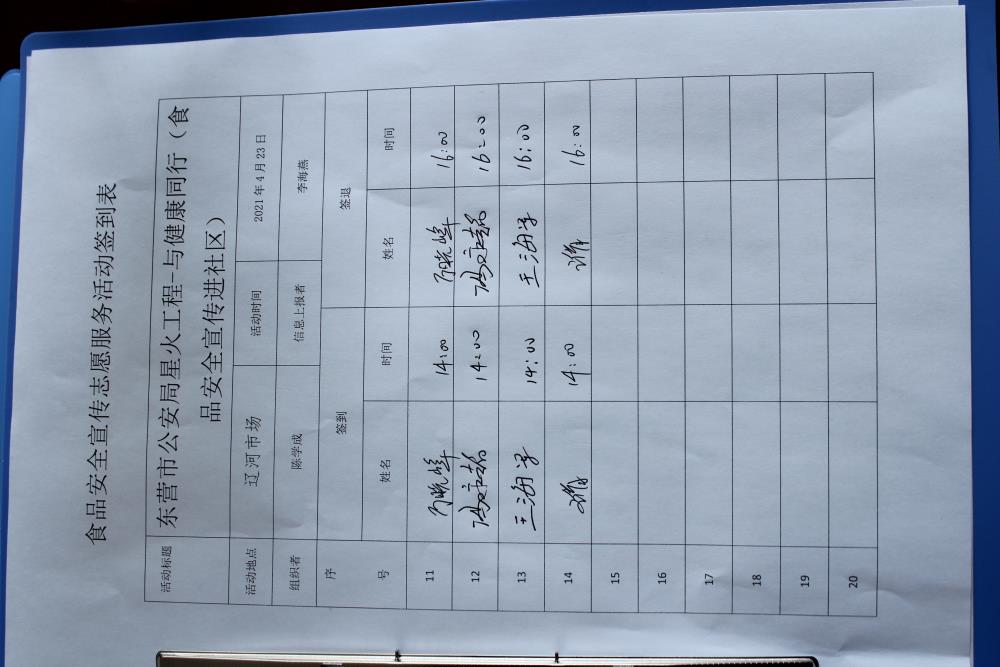 食品安全宣传志愿服务活动签到表
活动标题 东营市公安局星火工程-与健康同行（食
品安全宣传进社区）
活动地点 辽河市场 活动时间 2021年4月23日
组织者 陈学成 信息上报者 李海燕
序 签到 签退
号 姓名 时间 姓名 时间
11 14:00 16:00
12 14:00 16:00
13 王海军 14:00 王海军 16:00
14 14:00 16:00
15
16
17
18
19
20